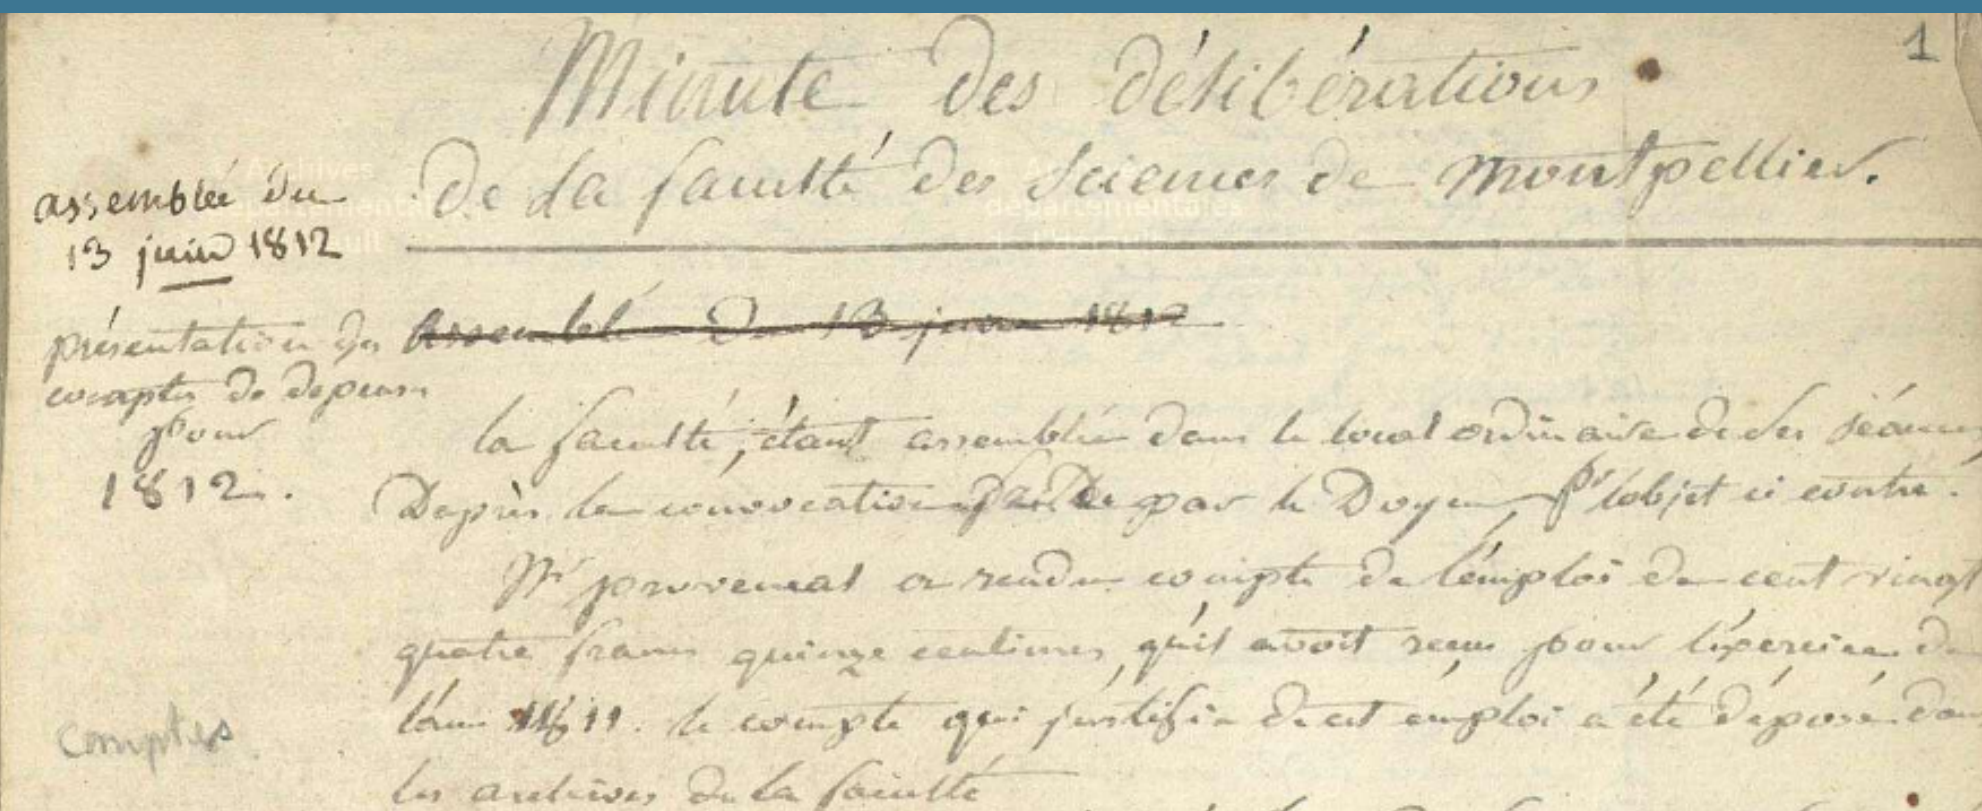 1
Minute des délibérations
de la faculté des Sciences de Montpellier.
assemblée du
13 juin 1812
présentation des
comptes de depenses
pour
1812.
Assemblé du 13 juin 1812
la faculté, étant assemblée dans le local ordinaire de ses séances
Deprès la convocation faite par le Doyen pr l'objet ci contre.
Mr provencal a rendu compte de l'emploi de cent vingt
quatre francs quinze centimes qu'il avoit reçu pour l'exercice de
l'an 1811. le compte qui justifie de cet emploi a été déposé dans
les archives de la faculté
comptes
Archives
départementales